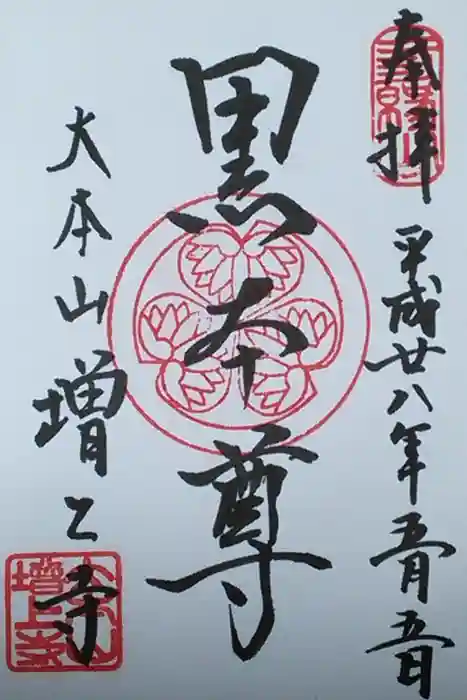 奉拝
平成廿八年五月五日
黒本尊
大本山増上寺